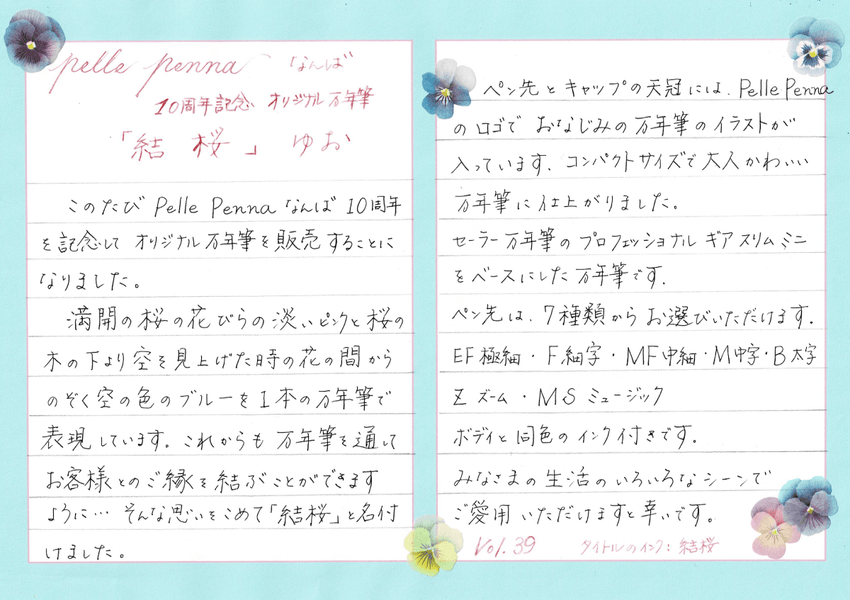 pelle penna なんば
10周年記念 オリジナル万年筆
「結 桜」 ゆお
このたび Pelle Penna なんば 10周年
を記念して オリジナル万年筆を販売することに
なりました。
満開の桜の花びらの淡いピンクと桜の
木の下より空を見上げた時の花の間から
のぞく空の色のブルーを1本の万年筆で
表現しています。これからも万年筆を通して
お客様とのご縁を結ぶことができます
ように… そんな思いをこめて「結桜」と名付
けました。
ペン先とキャップの天冠には、Pelle Penna
のロゴで おなじみの万年筆のイラストが
入っています。コンパクトサイズで大人かわいい
万年筆に仕上がりました。
セーラー万年筆のプロフェッショナル ギア スリム ミニ
をベースにした万年筆です。
ペン先は、7種類からお選びいただけます。
EF極細・F細字・MF中細・M中字・B太字
Z ズーム・MS ミュージック
ボディと同色のインク付きです。
みなさまの生活のいろいろなシーンで
ご愛用いただけますと幸いです。
Vol.39 タイトルのインク：結桜